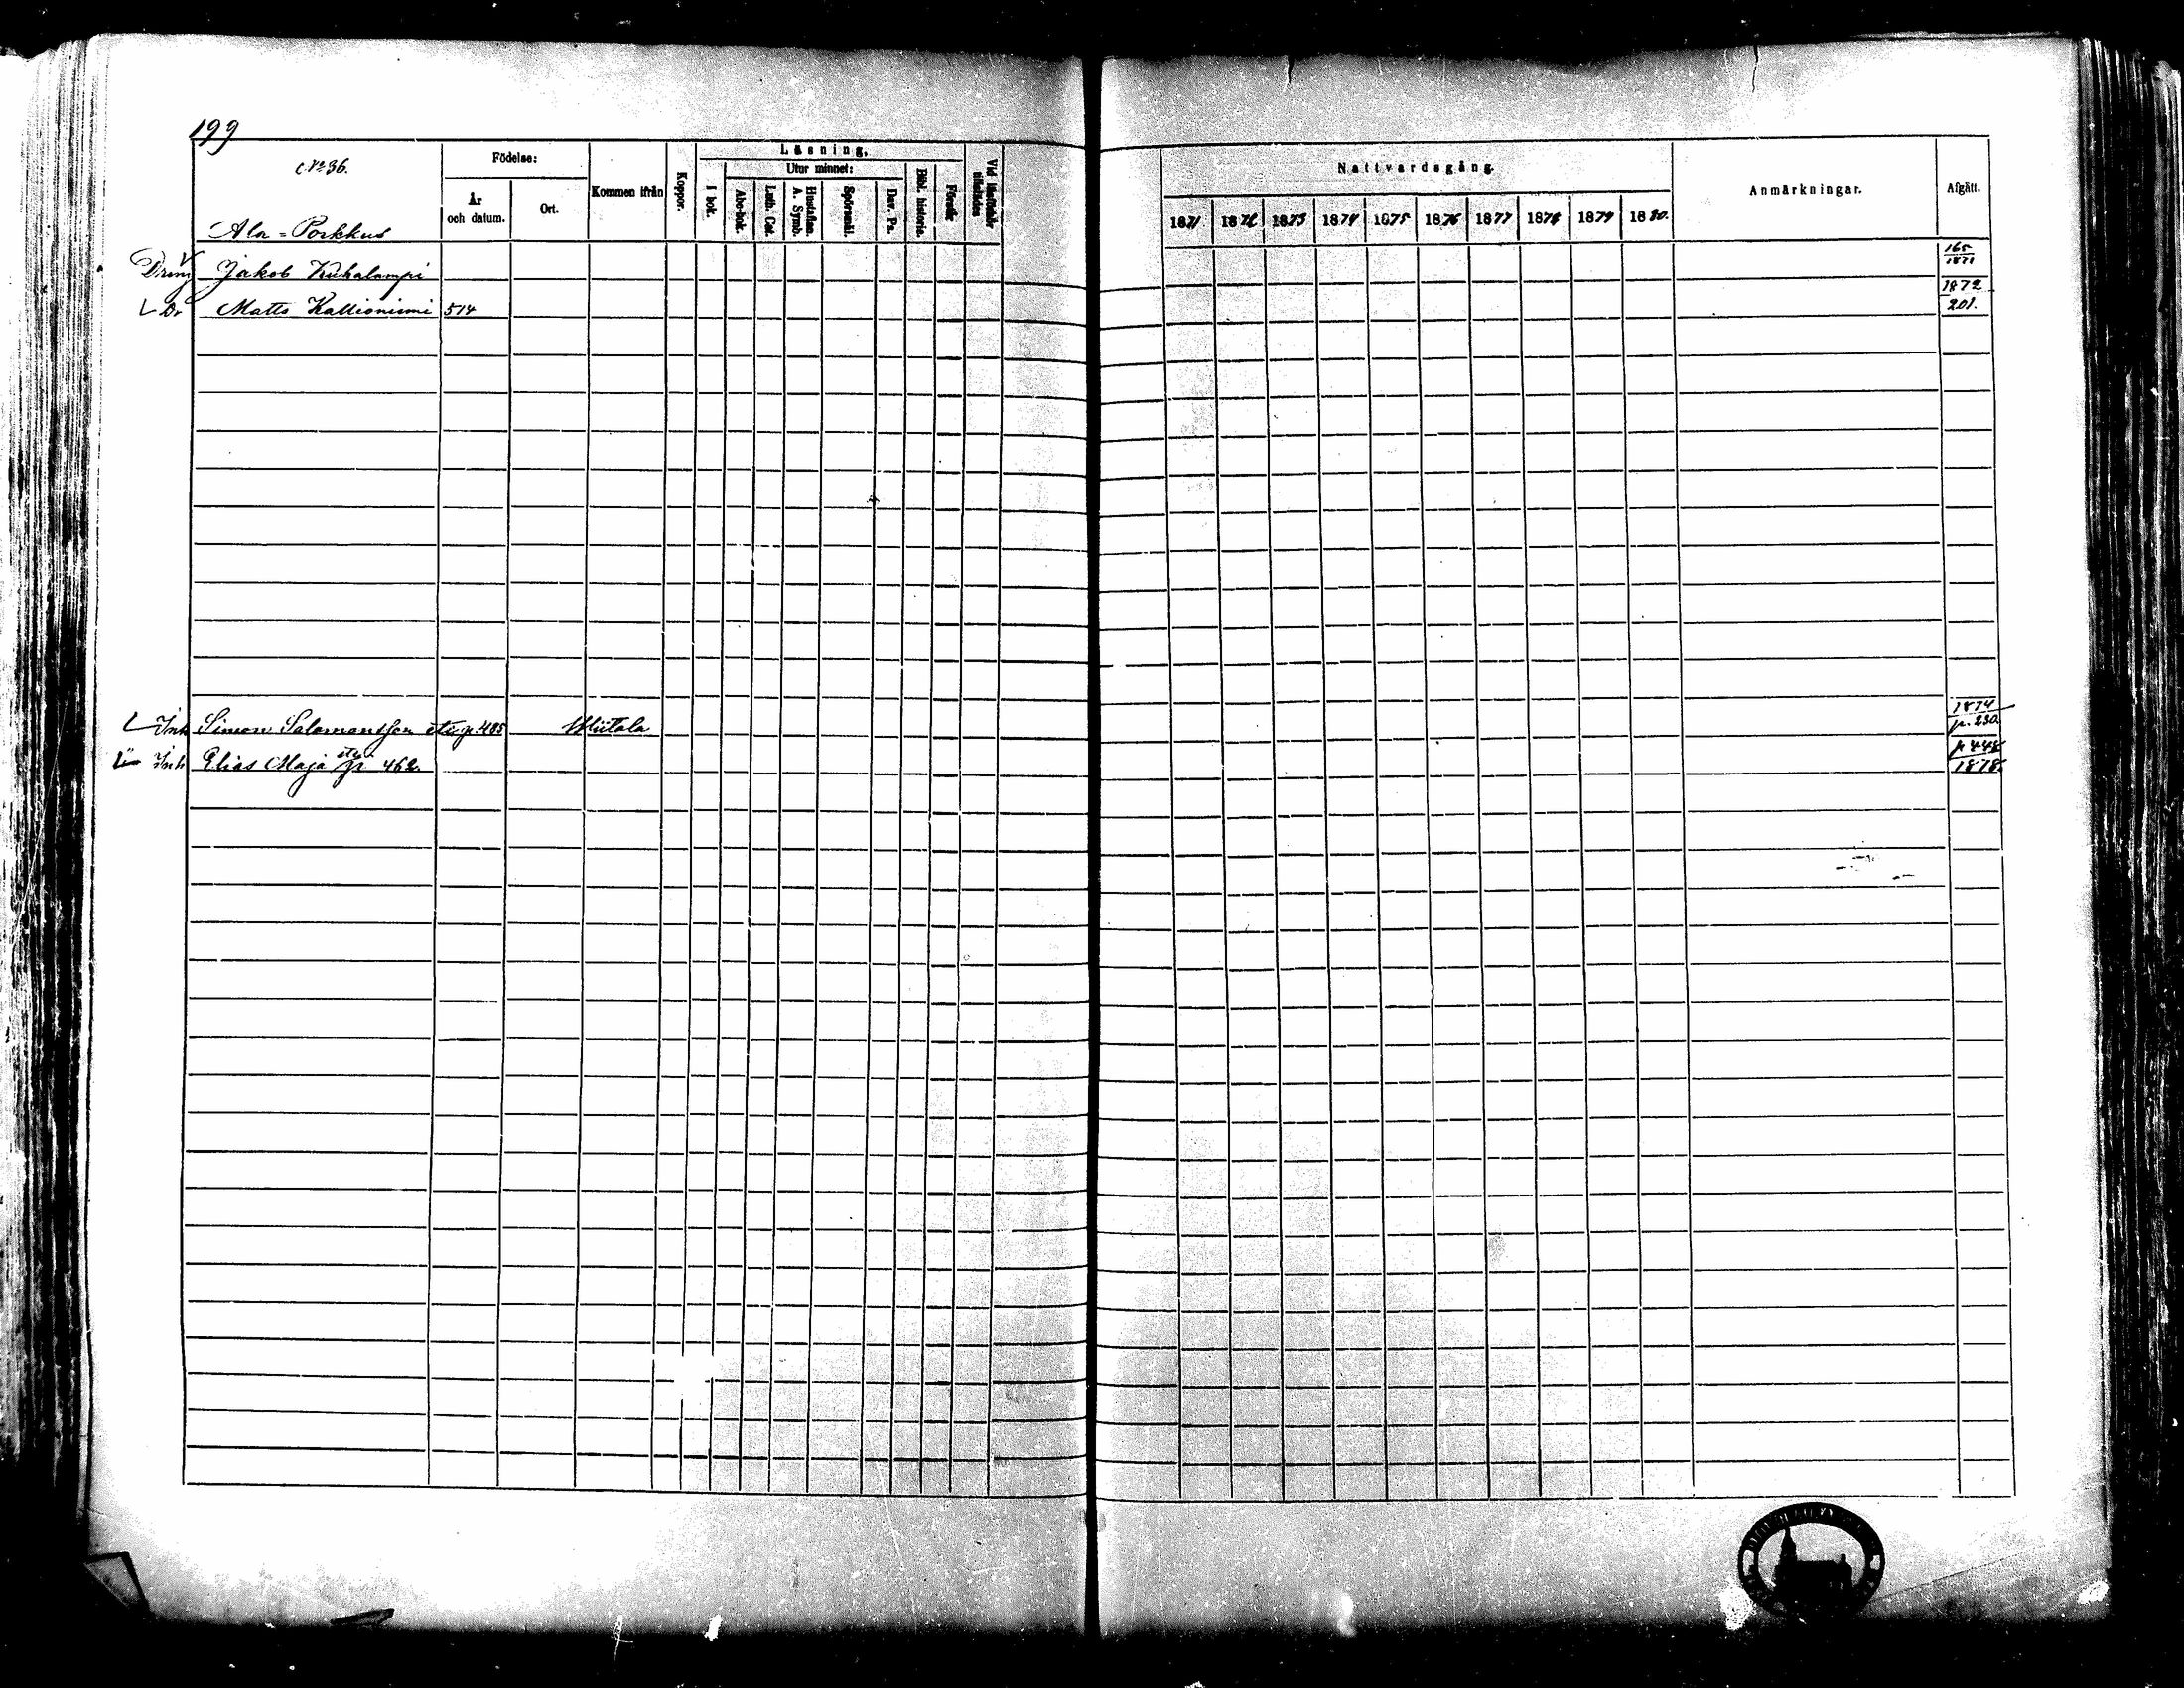 199
No 36.
Ala-Porkkus
Födelse:
År och datum.
Ort.
Kommen ifrån
Koppor.
Läsning.
I bok.
Utur minnet:
Abc-bok.
Luth. Cat.
Hustaflan. A. Symb.
Spörsmål.
Dav. Ps.
Bibl. historia.
Förstår
Vid läsförhör tillstädes
Nattvardsgång.
1871 1872 1873 1874 1875 1876 1877 1878 1879 1880.
Anmärkningar.
Afgått.
Dräng Jakob Kuhalampi 165 1871
Dr Matts Kallioniemi 514 1872 201.
Inh Simon Salomansson p. 485 1874 p. 230.
Inh Elias Maja p. 462. p 448 1878.